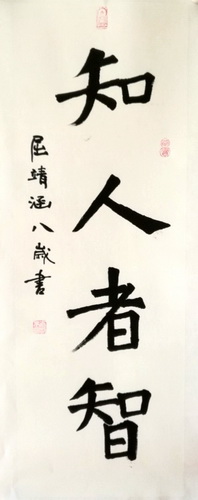 知人者智
屈靖涵八歲書